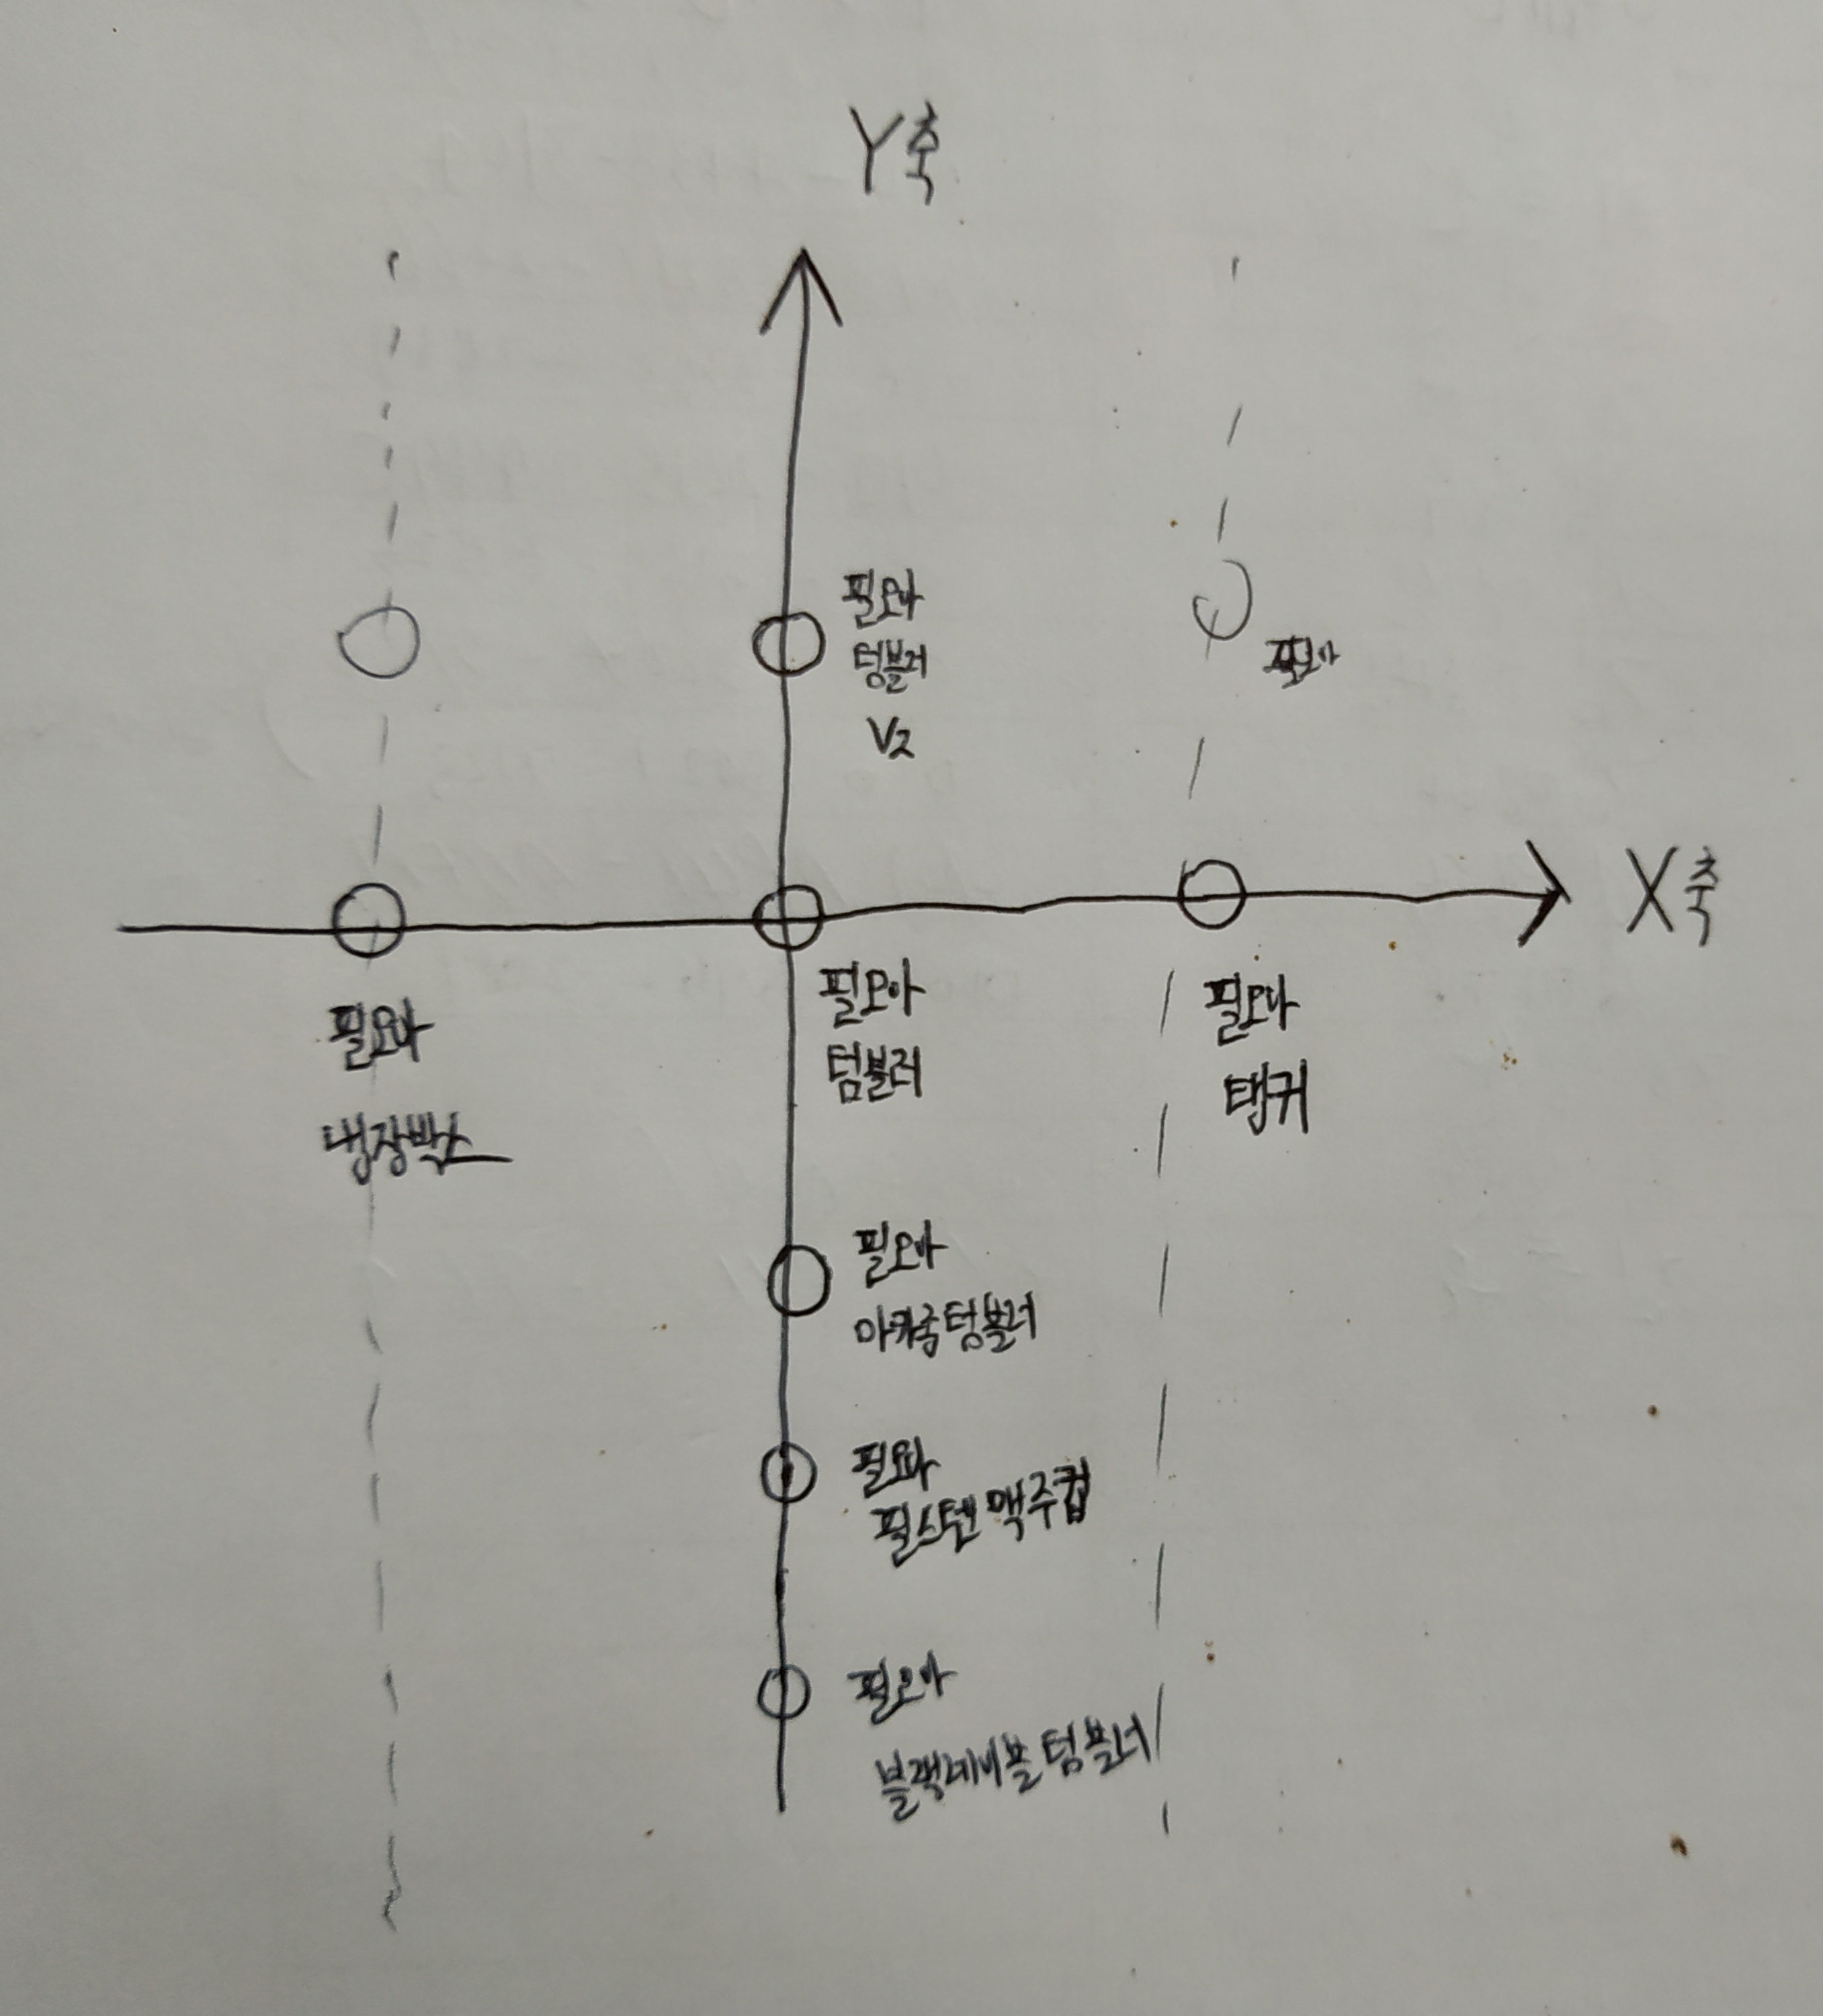 Y축
필요아
텀블러
V2
필요아
X축
필요아
냉장박스
필요아
텀블러
필요아
탱귀
필요아
텀블러
필요아
필스텐 맥주컵
필요아
텀블러